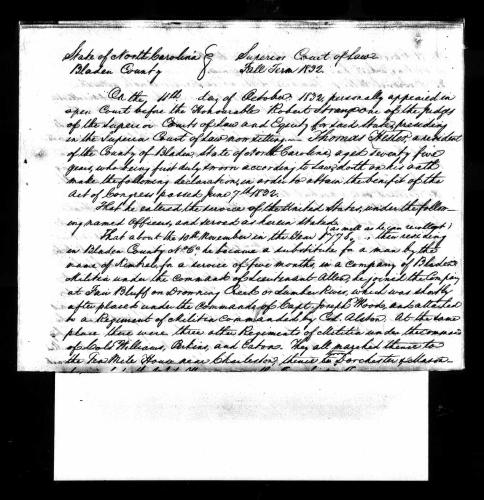 State of North Carolina } Superior Court of Law
Bladen County } Fall Term 1832.
On the 11th day of October 1832, personally appeared in
open Court before the Honourable Robert Strange one of the judges
of the Superior Courts of Law and Equity for said State, presiding
in the Superior Court of Law now sitting — Thomas Hester, a resident
of the County of Bladen, State of North Carolina, aged seventy five
years, who being first duly sworn according to Law, doth on his oath
make the following declaration, in order to obtain the benefit of the
act of Congress passed June 7th 1832.
That he entered the service of the United States, under the follow-
ing named Officers, and served as herein stated.
(as well as he can recollect)
That about the 10th November in the year 1778, then residing
in Bladen County, he became a substitute for a man by the
name of Kimbral, for a service of five months, in a company of Bladen
Militia under the command of Lieutenant Allen, he joined the Company
at Fair Bluff on Drowning Creek or Lumber River, which was shortly
after placed under the Command of Capt. Joseph Woods, and attached
to a Regiment of Militia Commanded by Col. Alston. At the same
place there were three other Regiments of Militia under the command
of Cols Williams, Perkins, and Eaton. They all marched thence to
the Ten Mile House near Charleston, thence to Dorchester &